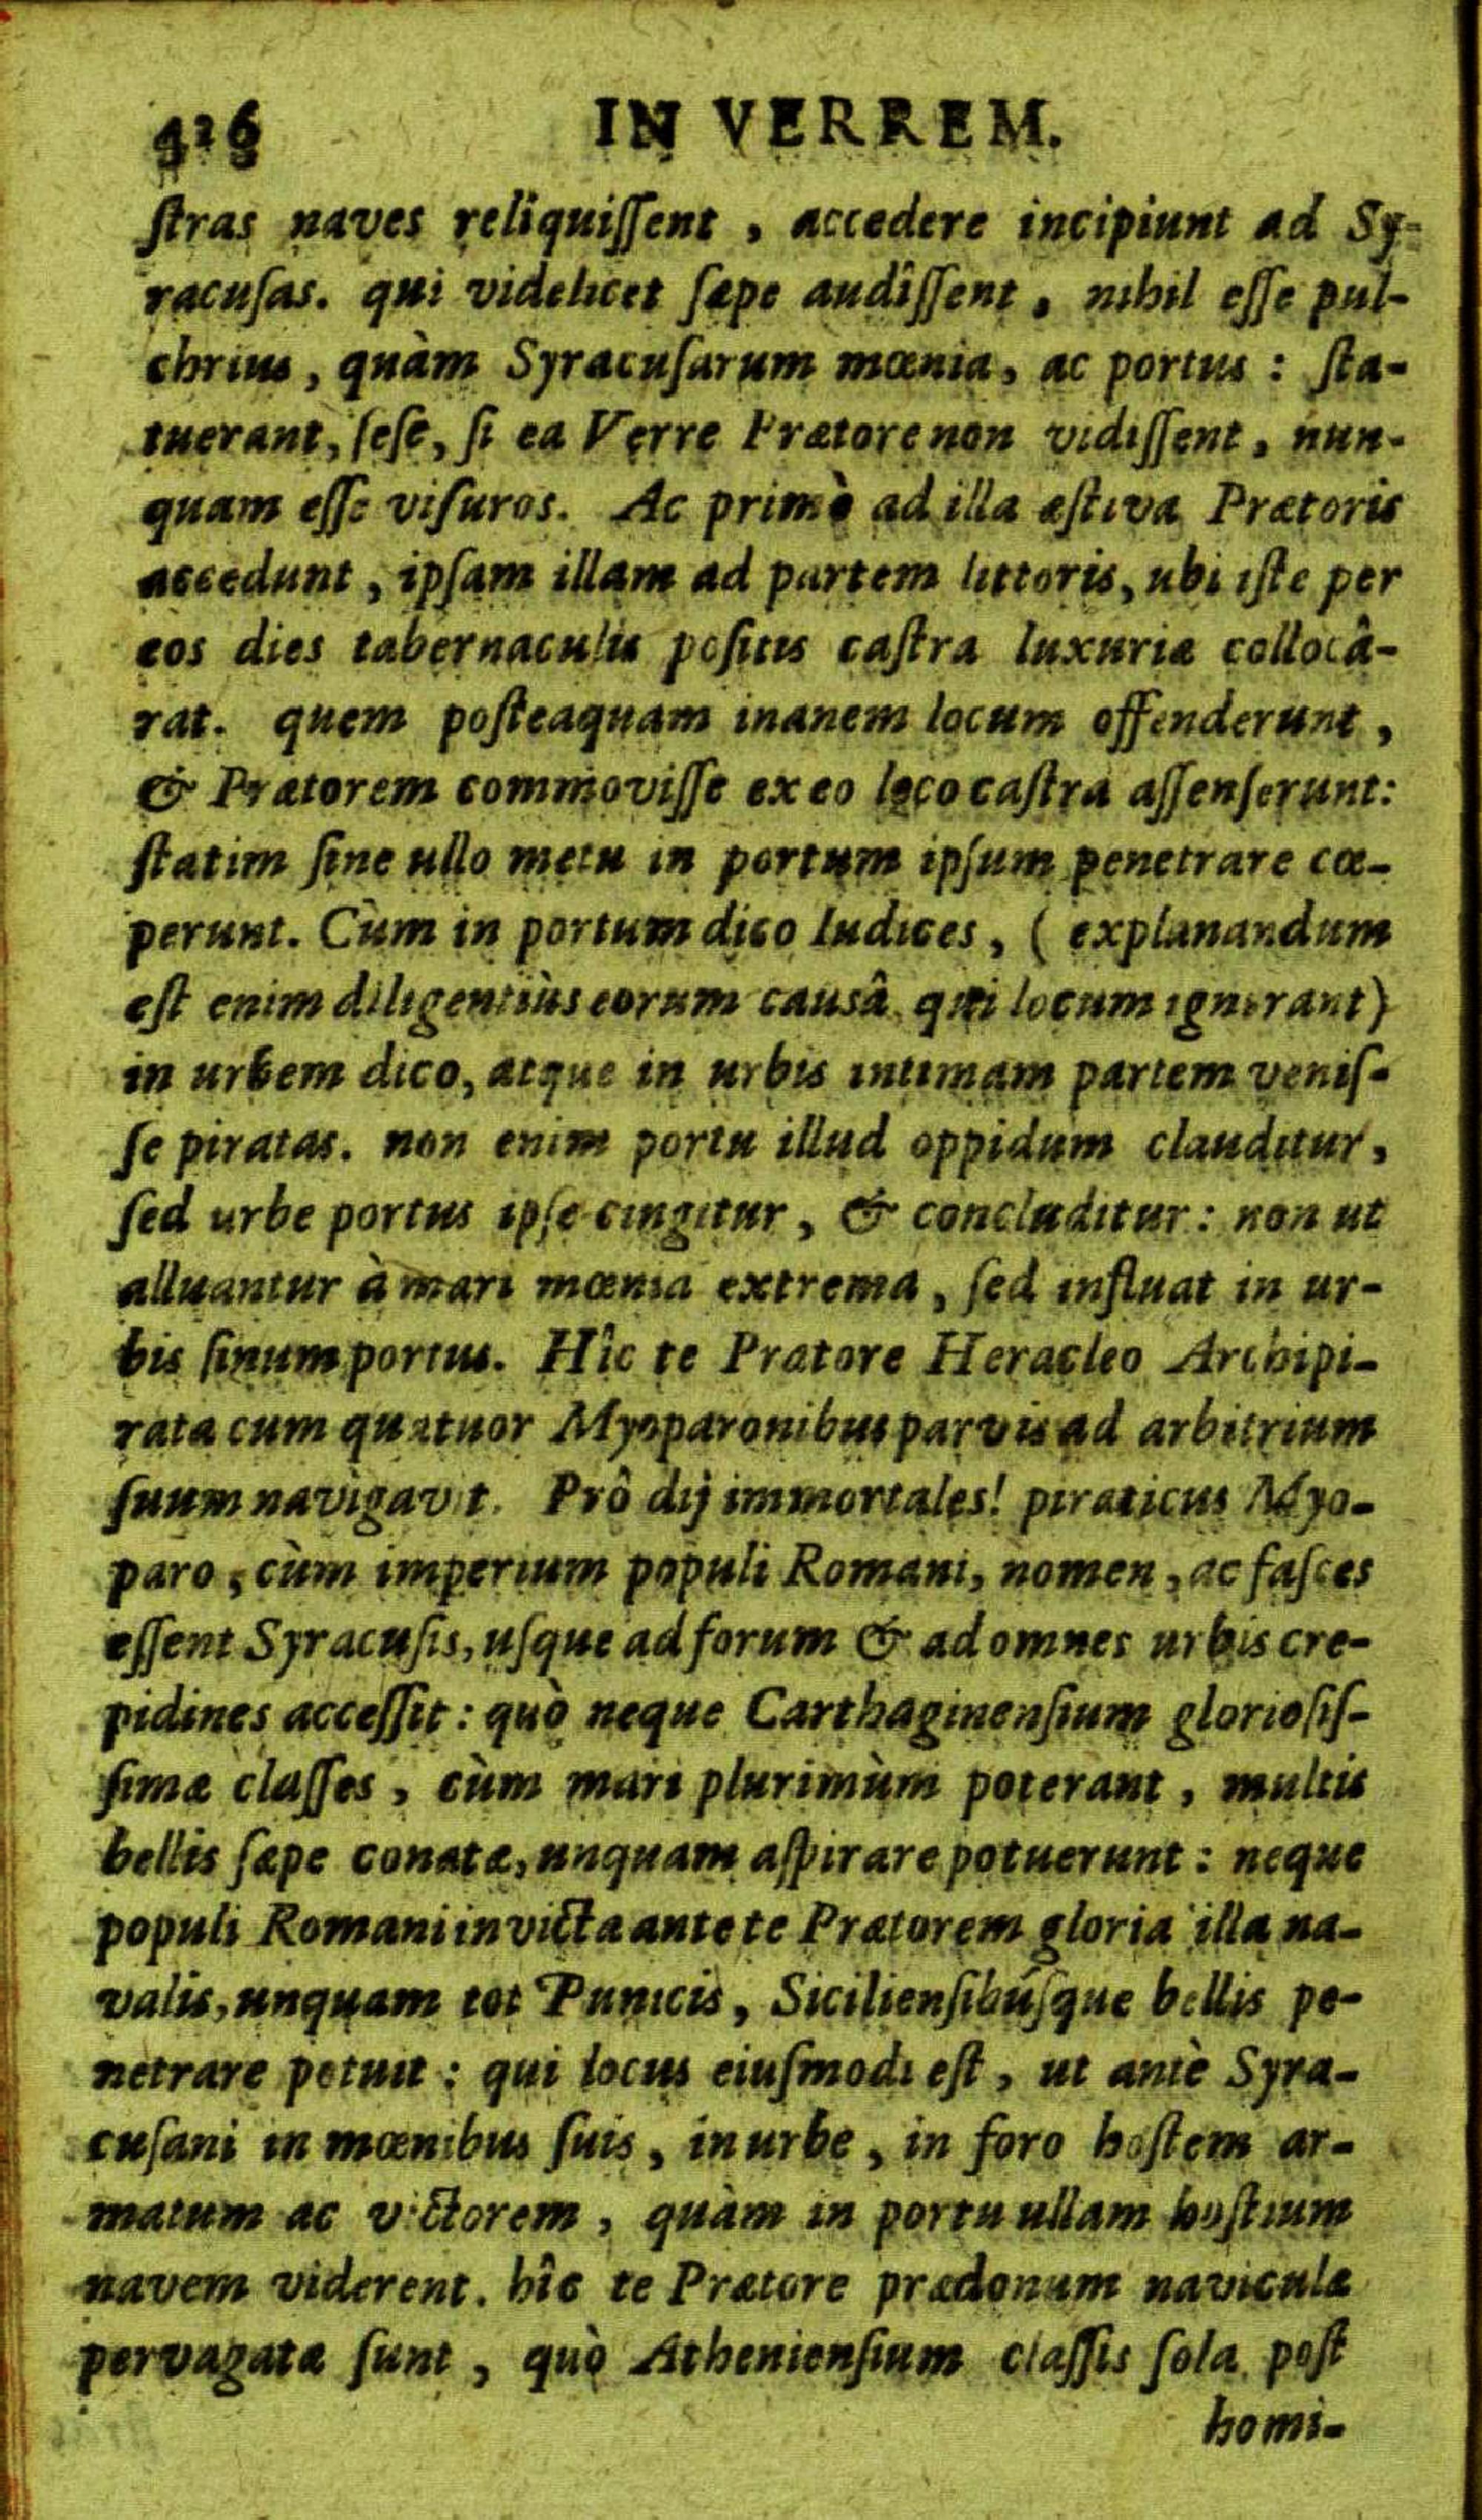 426 IN VERREM.
ſtras naves reliquiſſent , accedere incipiunt ad Sy-
racuſas. qui videlicet ſæpe audîſſent , nihil eſſe pul-
chrius, quàm Syracuſarum mœnia, ac portus : ſta-
tuerant, ſeſe, ſi ea Verre Prætore non vidiſſent, nun-
quam eſſe viſuros. Ac primò ad illa æſtiva Prætoris
accedunt, ipſam illam ad partem littoris, ubi iſte per
eos dies tabernaculis poſitis caſtra luxuriæ collocâ-
rat. quem poſteaquam inanem locum offenderunt,
& Prætorem commoviſſe ex eo loco caſtra aſſenſerunt:
ſtatim ſine ullo metu in portum ipſum penetrare cœ-
perunt. Cùm in portum dico Iudices, ( explanandum
eſt enim diligentiùs eorum causâ qui locum ignorant)
in urbem dico, atque in urbis intimam partem veniſ-
ſe piratas. non enim portu illud oppidum clauditur,
ſed urbe portus ipſe cingitur, & concluditur: non ut
alluantur à mari mœnia extrema, ſed influat in ur-
bis ſinum portus. Hîc te Prætore Heracleo Archipi-
rata cum quatuor Myoparonibus parvis ad arbitrium
ſuum navigavit. Prô dij immortales! piraticus Myo-
paro, cùm imperium populi Romani, nomen, ac faſces
eſſent Syracuſis, uſque ad forum & ad omnes urbis cre-
pidines acceſſit: quò neque Carthaginenſium glorioſiſ-
ſimæ claſſes, cùm mari plurimùm poterant, multis
bellis ſæpe conatæ, unquam aſpirare potuerunt: neque
populi Romani invicta ante te Prætorem gloria illa na-
valis, unquam tot Punicis, Sicilienſibúſque bellis pe-
netrare potuit: qui locus eiuſmodi eſt, ut antè Syra-
cuſani in mœnibus ſuis, in urbe, in foro hoſtem ar-
matum ac victorem, quàm in portu ullam hoſtium
navem viderent. hîc te Prætore prædonum naviculæ
pervagatæ ſunt, quò Athenienſium claſſis ſola poſt
homi-